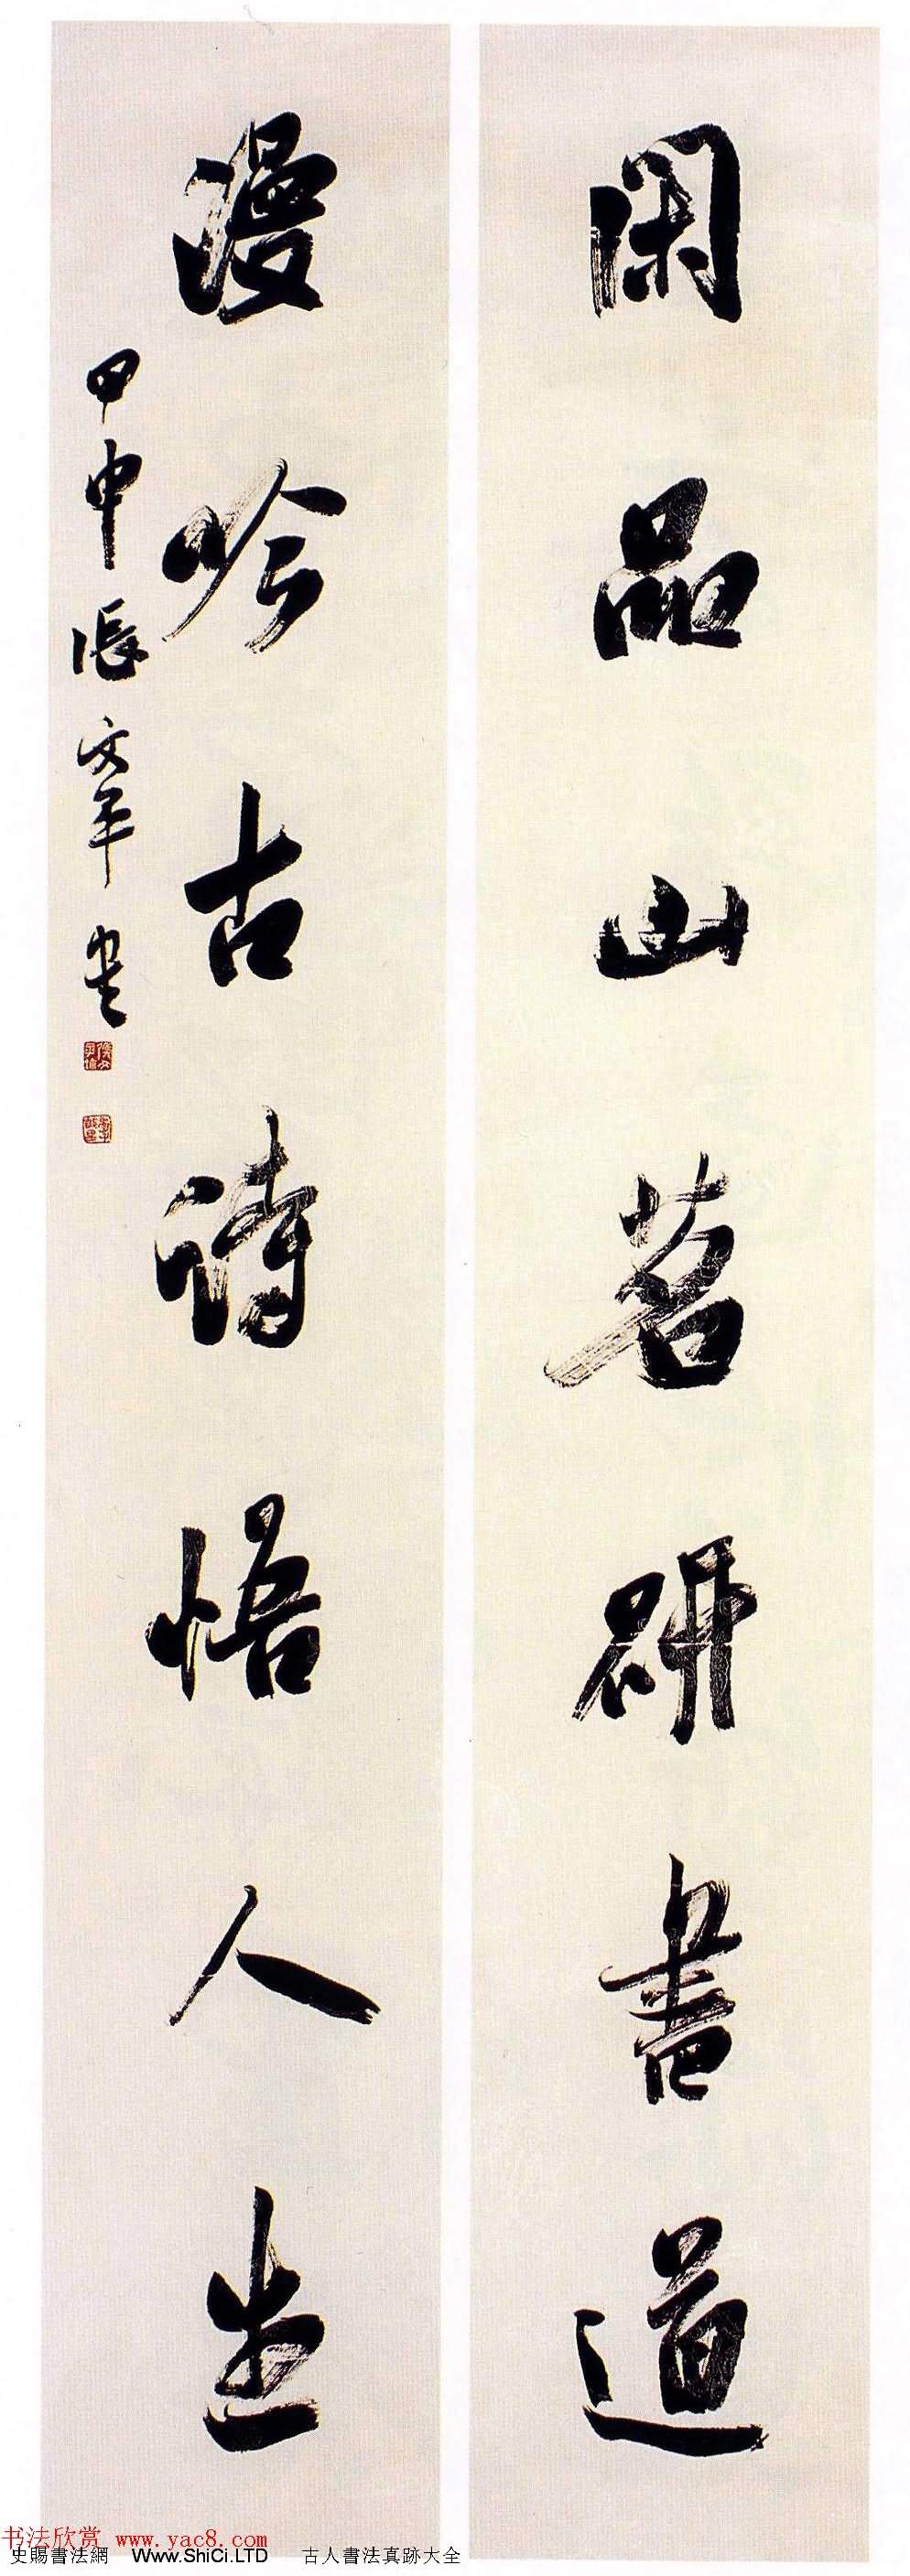 閑品山茗研書道
漫吟古詩悟人生
甲申張文平书
书法欣赏 www.yac8.com
史賜書法網 Www.ShiCi.LTD 古人書法真跡大全